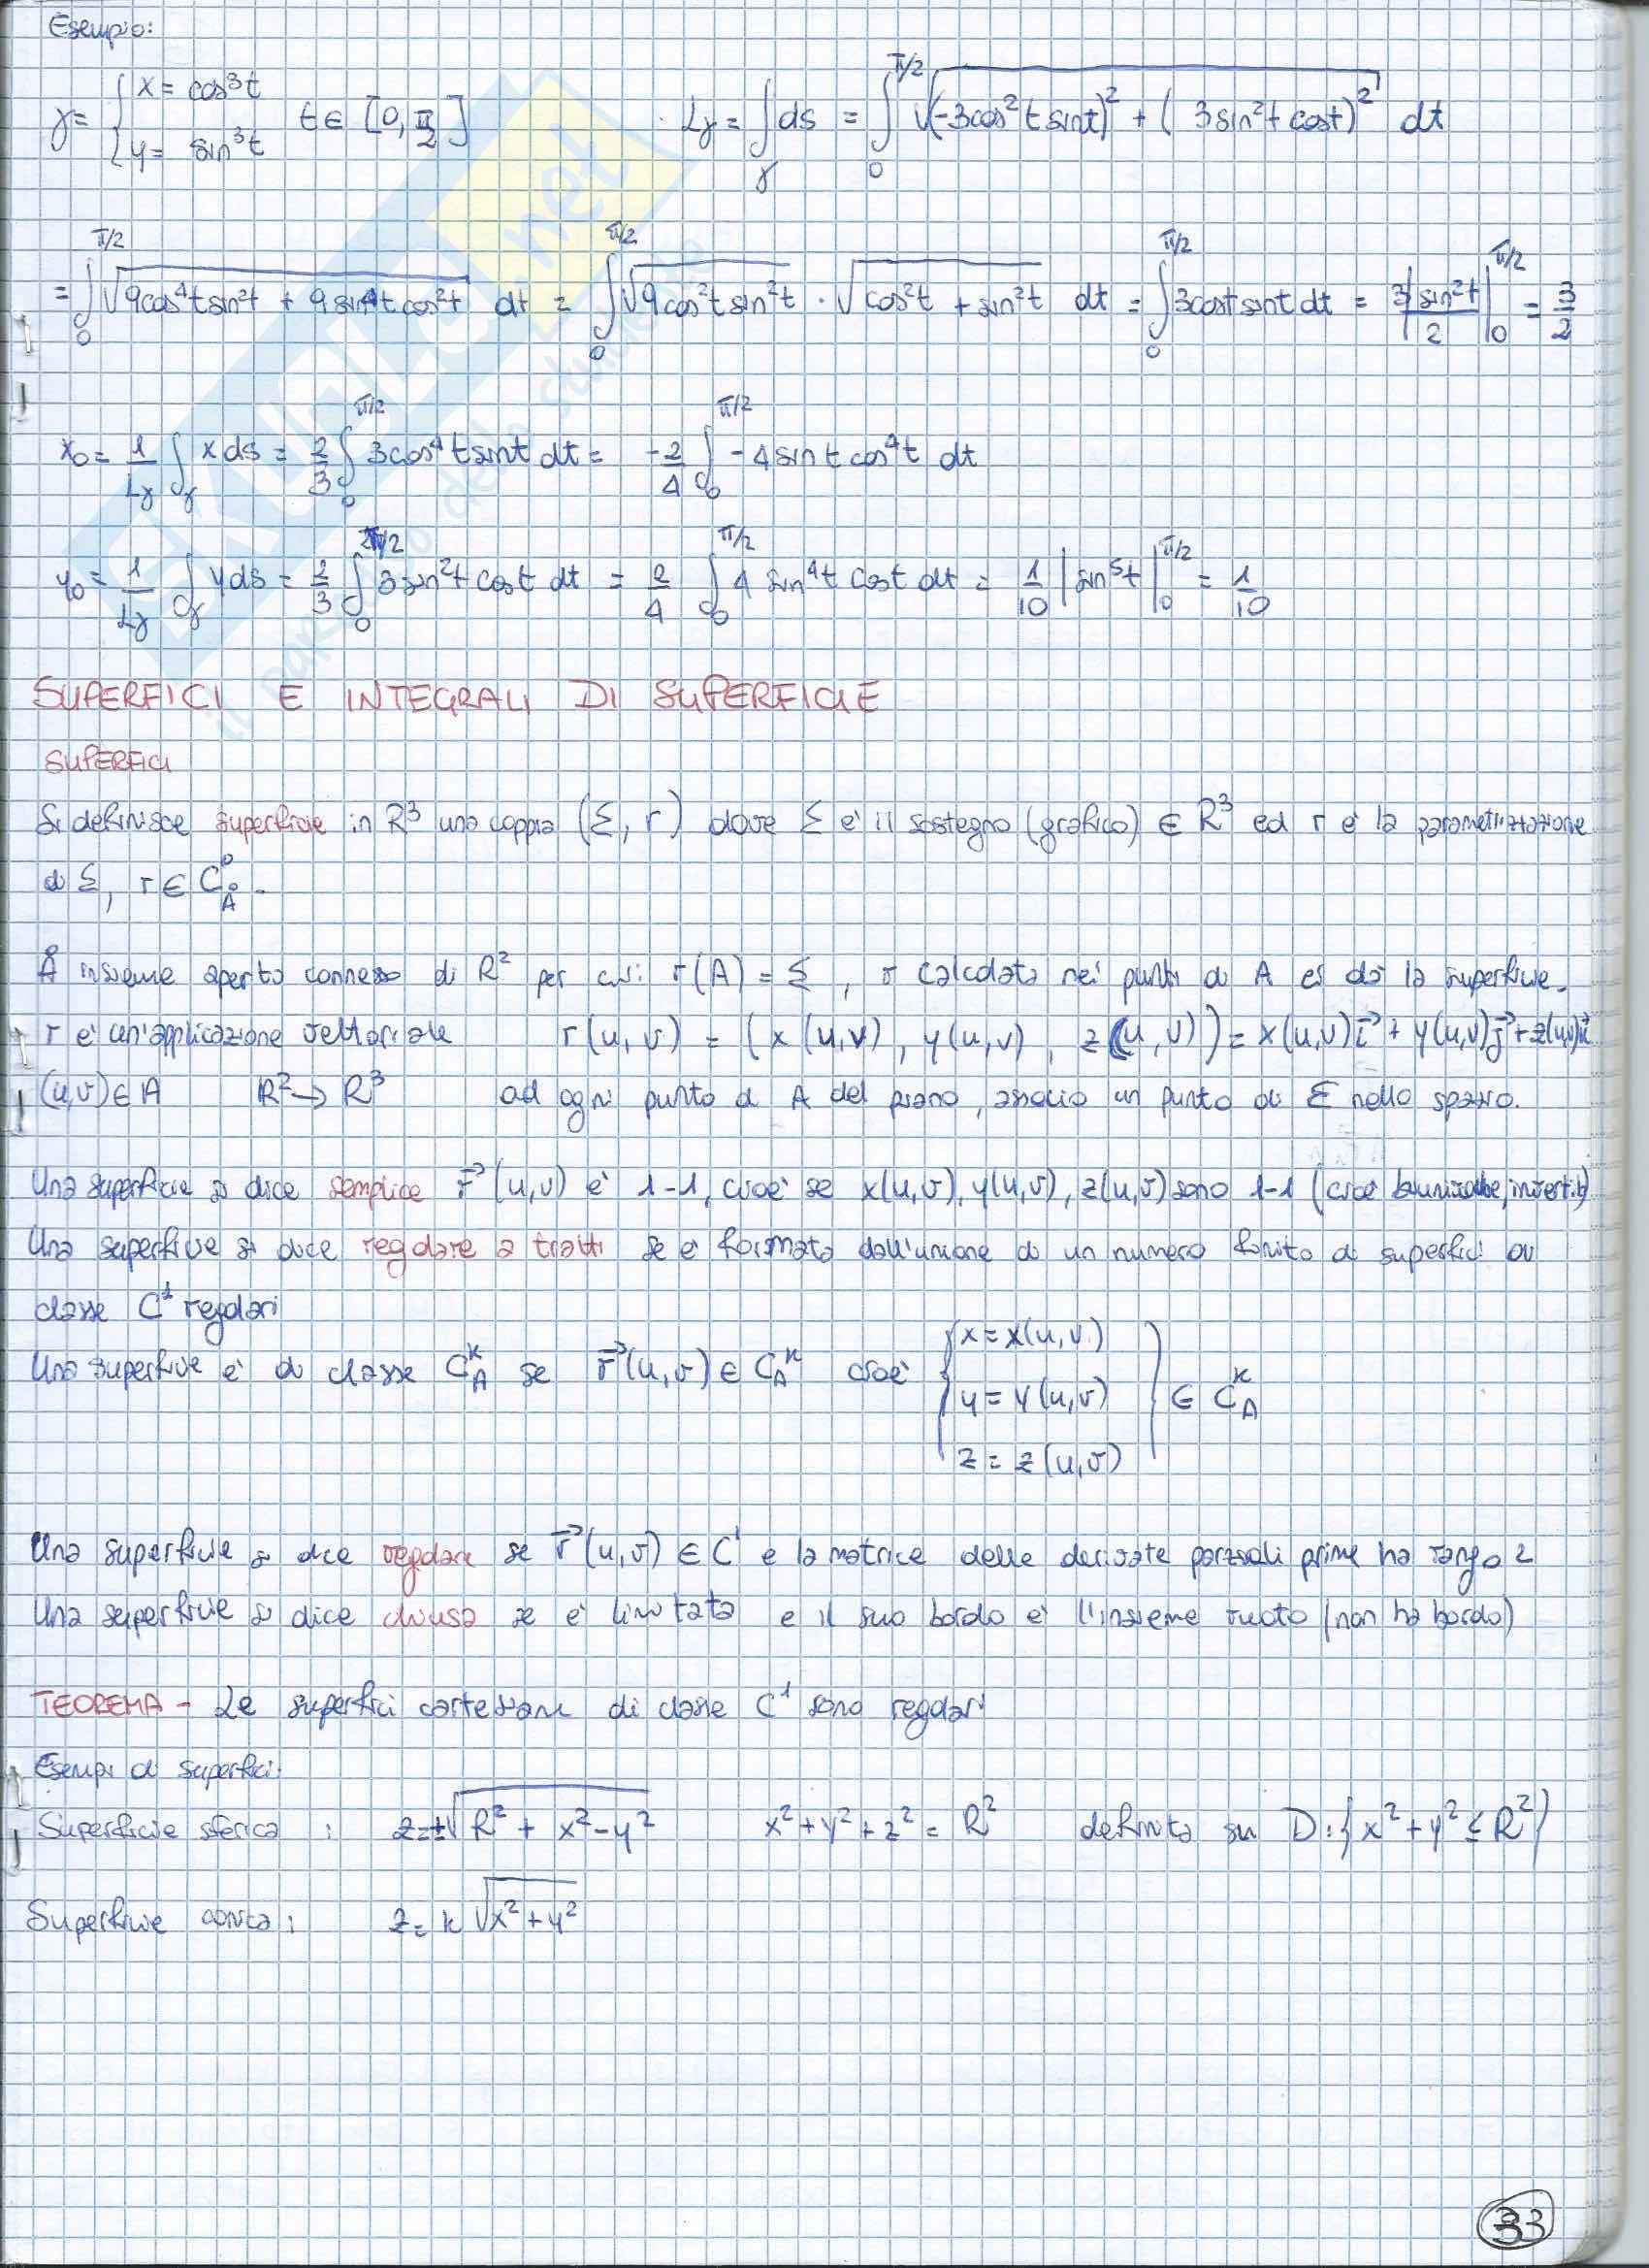 Esempio:
γ = { x = cos³t y = sin³t t ∈ [0, π/2] Lγ = ∫γ ds = ∫₀^{π/2} √((-3cos²t sint)² + (3sin²t cost)²) dt
= ∫₀^{π/2} √(9cos⁴t sin²t + 9sin⁴t cos²t) dt = ∫₀^{π/2} √(9cos²t sin²t) · √(cos²t + sin²t) dt = ∫₀^{π/2} 3cost sint dt = 3|sin²t/2|₀^{π/2} = 3/2
x₀ = 1/Lγ ∫γ x ds = 2/3 ∫₀^{π/2} 3cos⁴t sint dt = -2/4 ∫₀^{π/2} -4sint cos⁴t dt
y₀ = 1/Lγ ∫γ y ds = 2/3 ∫₀^{π/2} 3sin²t cost dt = 2/4 ∫₀^{π/2} 4 sin⁴t cost dt = 1/10 |sin⁵t|₀^{π/2} = 1/10
SUPERFICI E INTEGRALI DI SUPERFICIE
SUPERFICI
Si definisce superficie in R³ una coppia (Σ, r) dove Σ è il sostegno (grafico) ∈ R³ ed r è la parametrizzazione
di Σ, r ∈ C⁰_A.
Å insieme aperto connesso di R² per cui r(A) = Σ, r calcolata nei punti di A ci dà la superficie.
r è un'applicazione vettoriale r(u,v) = (x(u,v), y(u,v), z(u,v)) = x(u,v)i⃗ + y(u,v)j⃗ + z(u,v)k⃗
(u,v) ∈ A R² → R³ ad ogni punto di A del piano, associo un punto di Σ nello spazio.
Una superficie si dice semplice r⃗(u,v) è 1-1, cioè se x(u,v), y(u,v), z(u,v) sono 1-1 (cioè biunivoche, invertib)
Una superficie si dice regolare a tratti se è formata dall'unione di un numero finito di superfici di
classe C¹ regolari
Una superficie è di classe C^k_A se r⃗(u,v) ∈ C^k_A cioè { x = x(u,v) y = y(u,v) z = z(u,v) } ∈ C^k_A
Una superficie si dice regolare se r⃗(u,v) ∈ C¹ e la matrice delle derivate parziali prime ha rango 2
Una superficie si dice chiusa se è limitata e il suo bordo è l'insieme vuoto (non ha bordo)
TEOREMA - Le superfici cartesiane di classe C¹ sono regolari
Esempi di superfici:
Superficie sferica : z = ±√(R² + x² - y²) x² + y² + z² = R² definita su D: {x² + y² ≤ R²}
Superficie conica : z = k √(x² + y²)
33